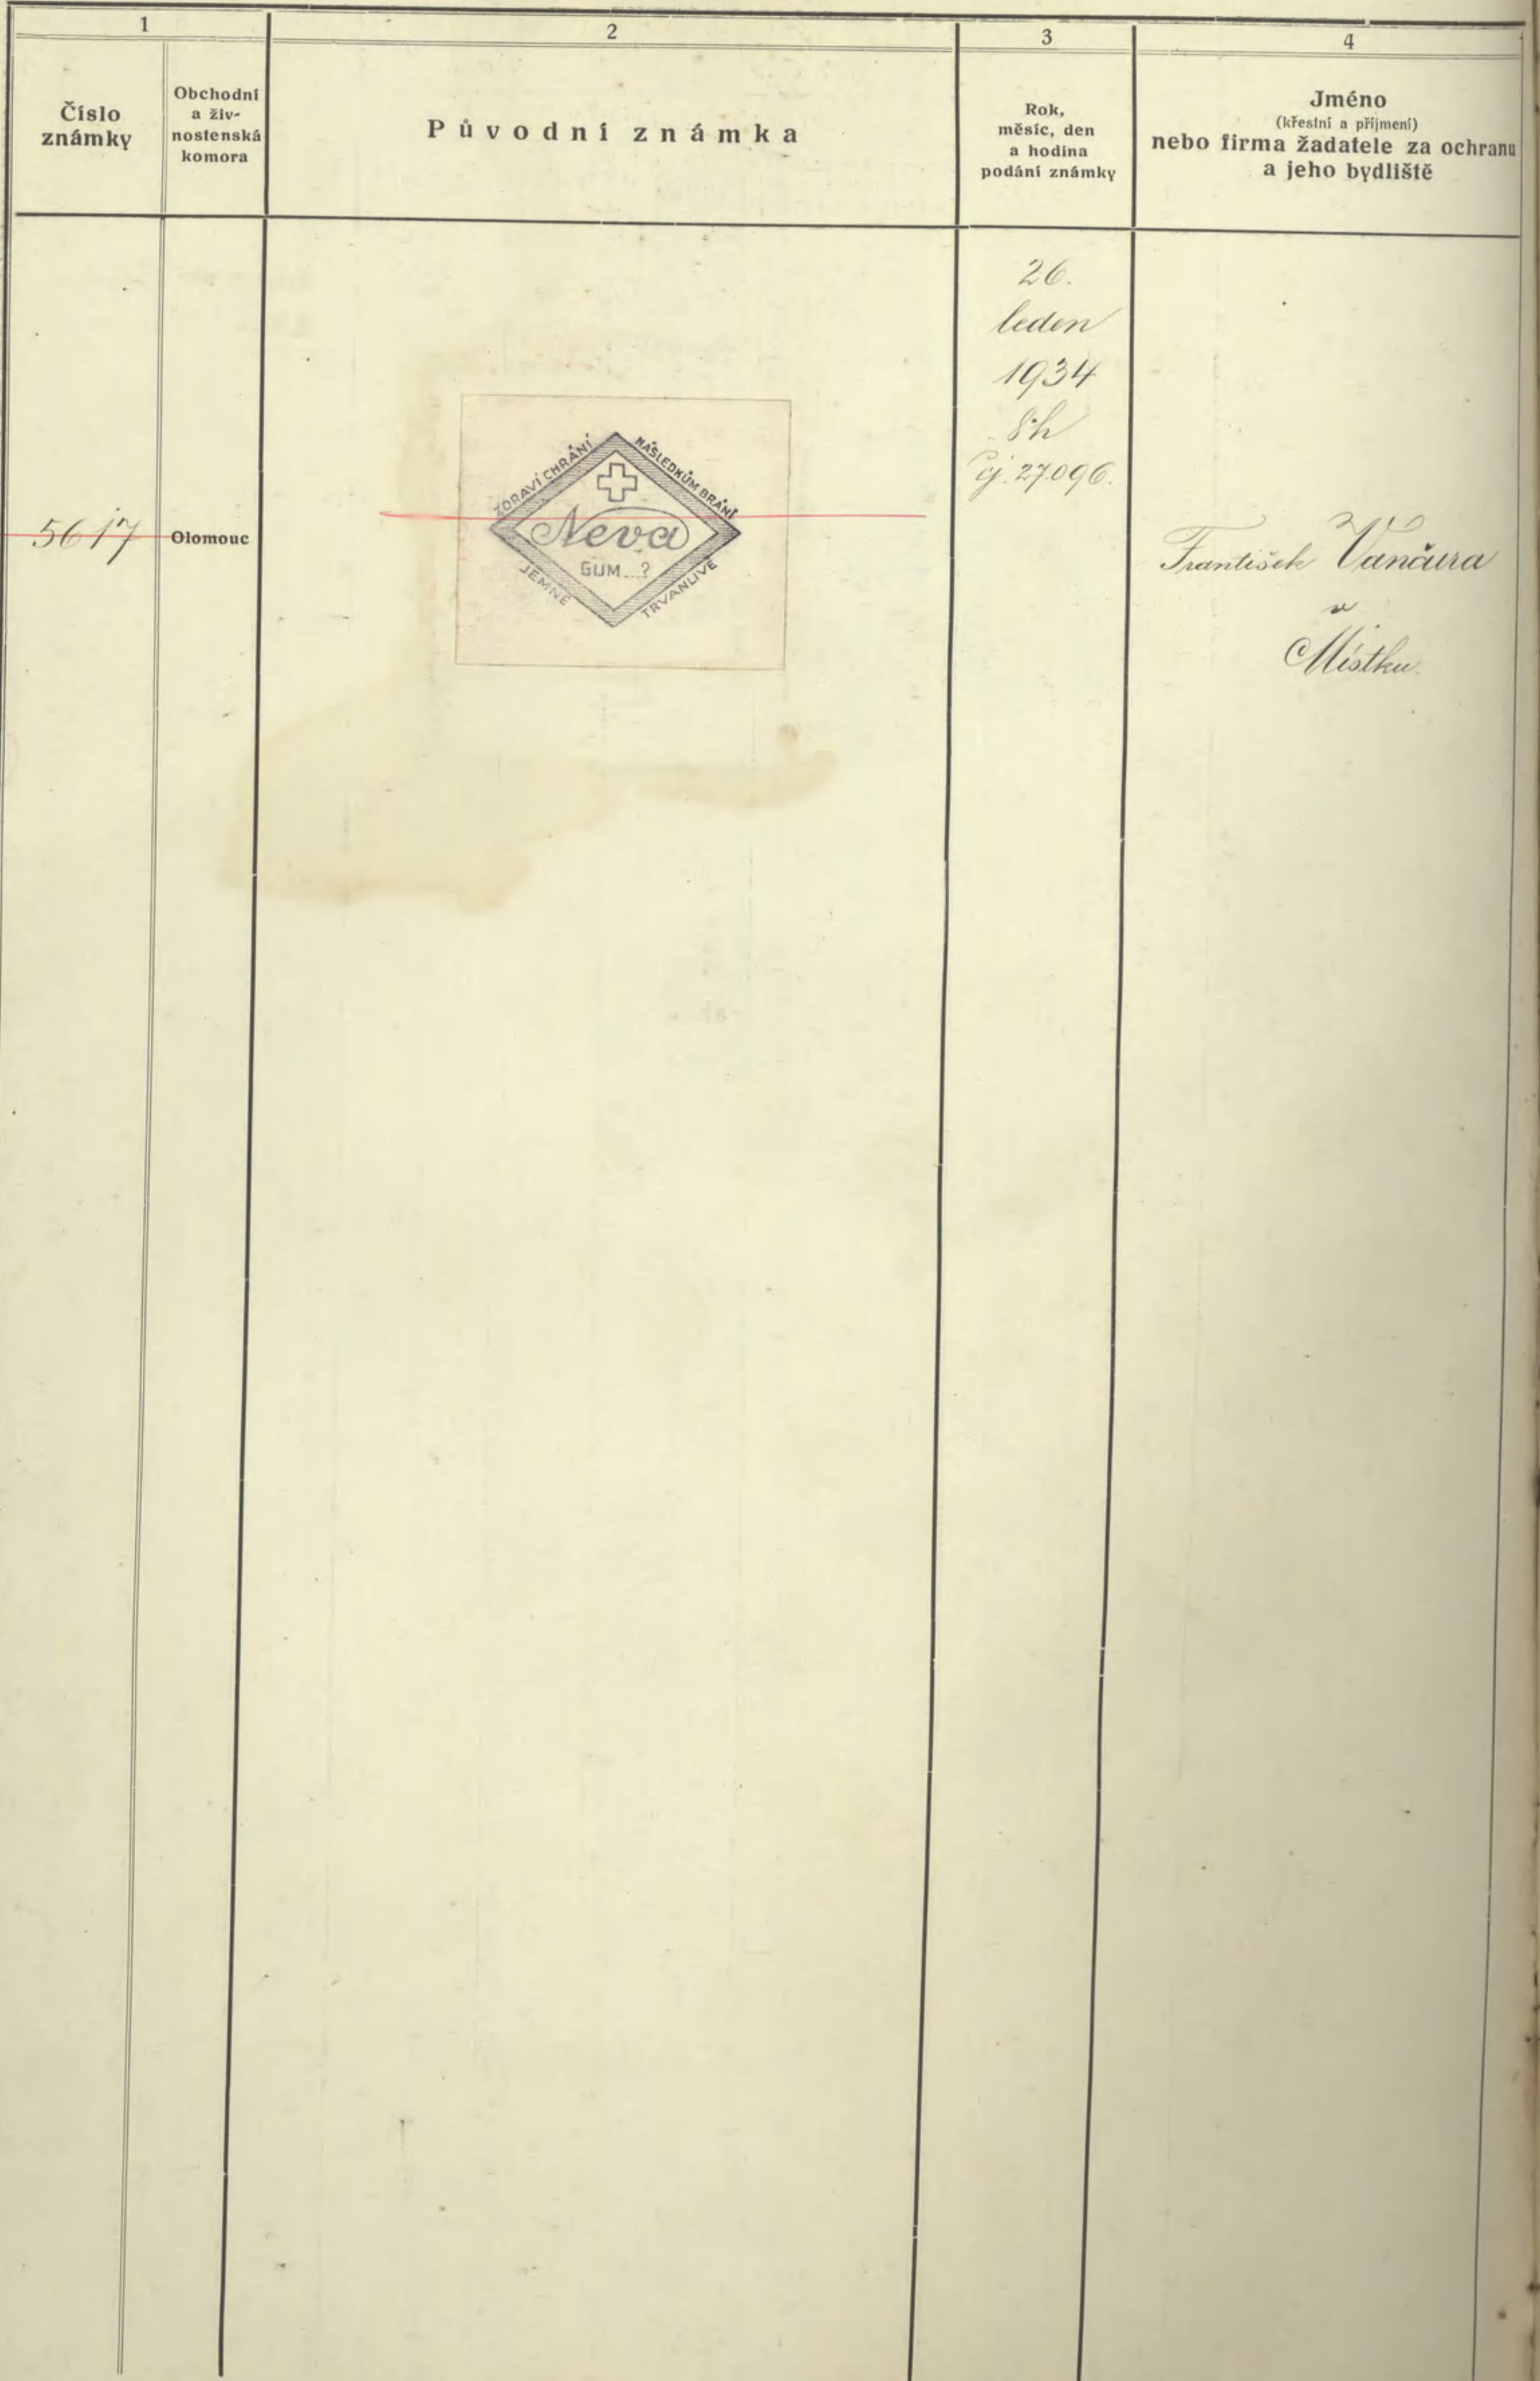 1
2
3
4
Číslo
známky
Obchodní
a živ-
nostenská
komora
Původní známka
Rok,
měsíc, den
a hodina
podání známky
Jméno
(křestní a příjmení)
nebo firma žadatele za ochranu
a jeho bydliště
5617
Olomouc
ZDRAVÍ CHRÁNÍ
NÁSLEDKŮM BRÁNÍ
Neva
GUM...?
JEMNÉ
TRVANLIVÉ
26.
leden
1934
8h
čj. 27.096.
František Vančura
v
Místku.